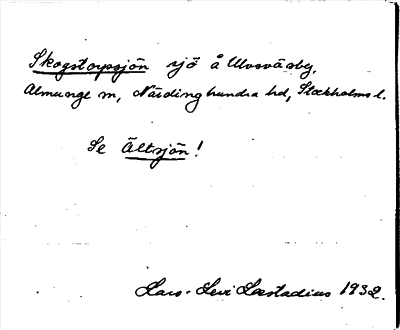 Skogstorpssjön sjö å Ulvsväsby,
Almunge sn, Närdinghundra hd, Stockholms l.
Se Ältsjön!
Lars-Levi Læstadius 1932.